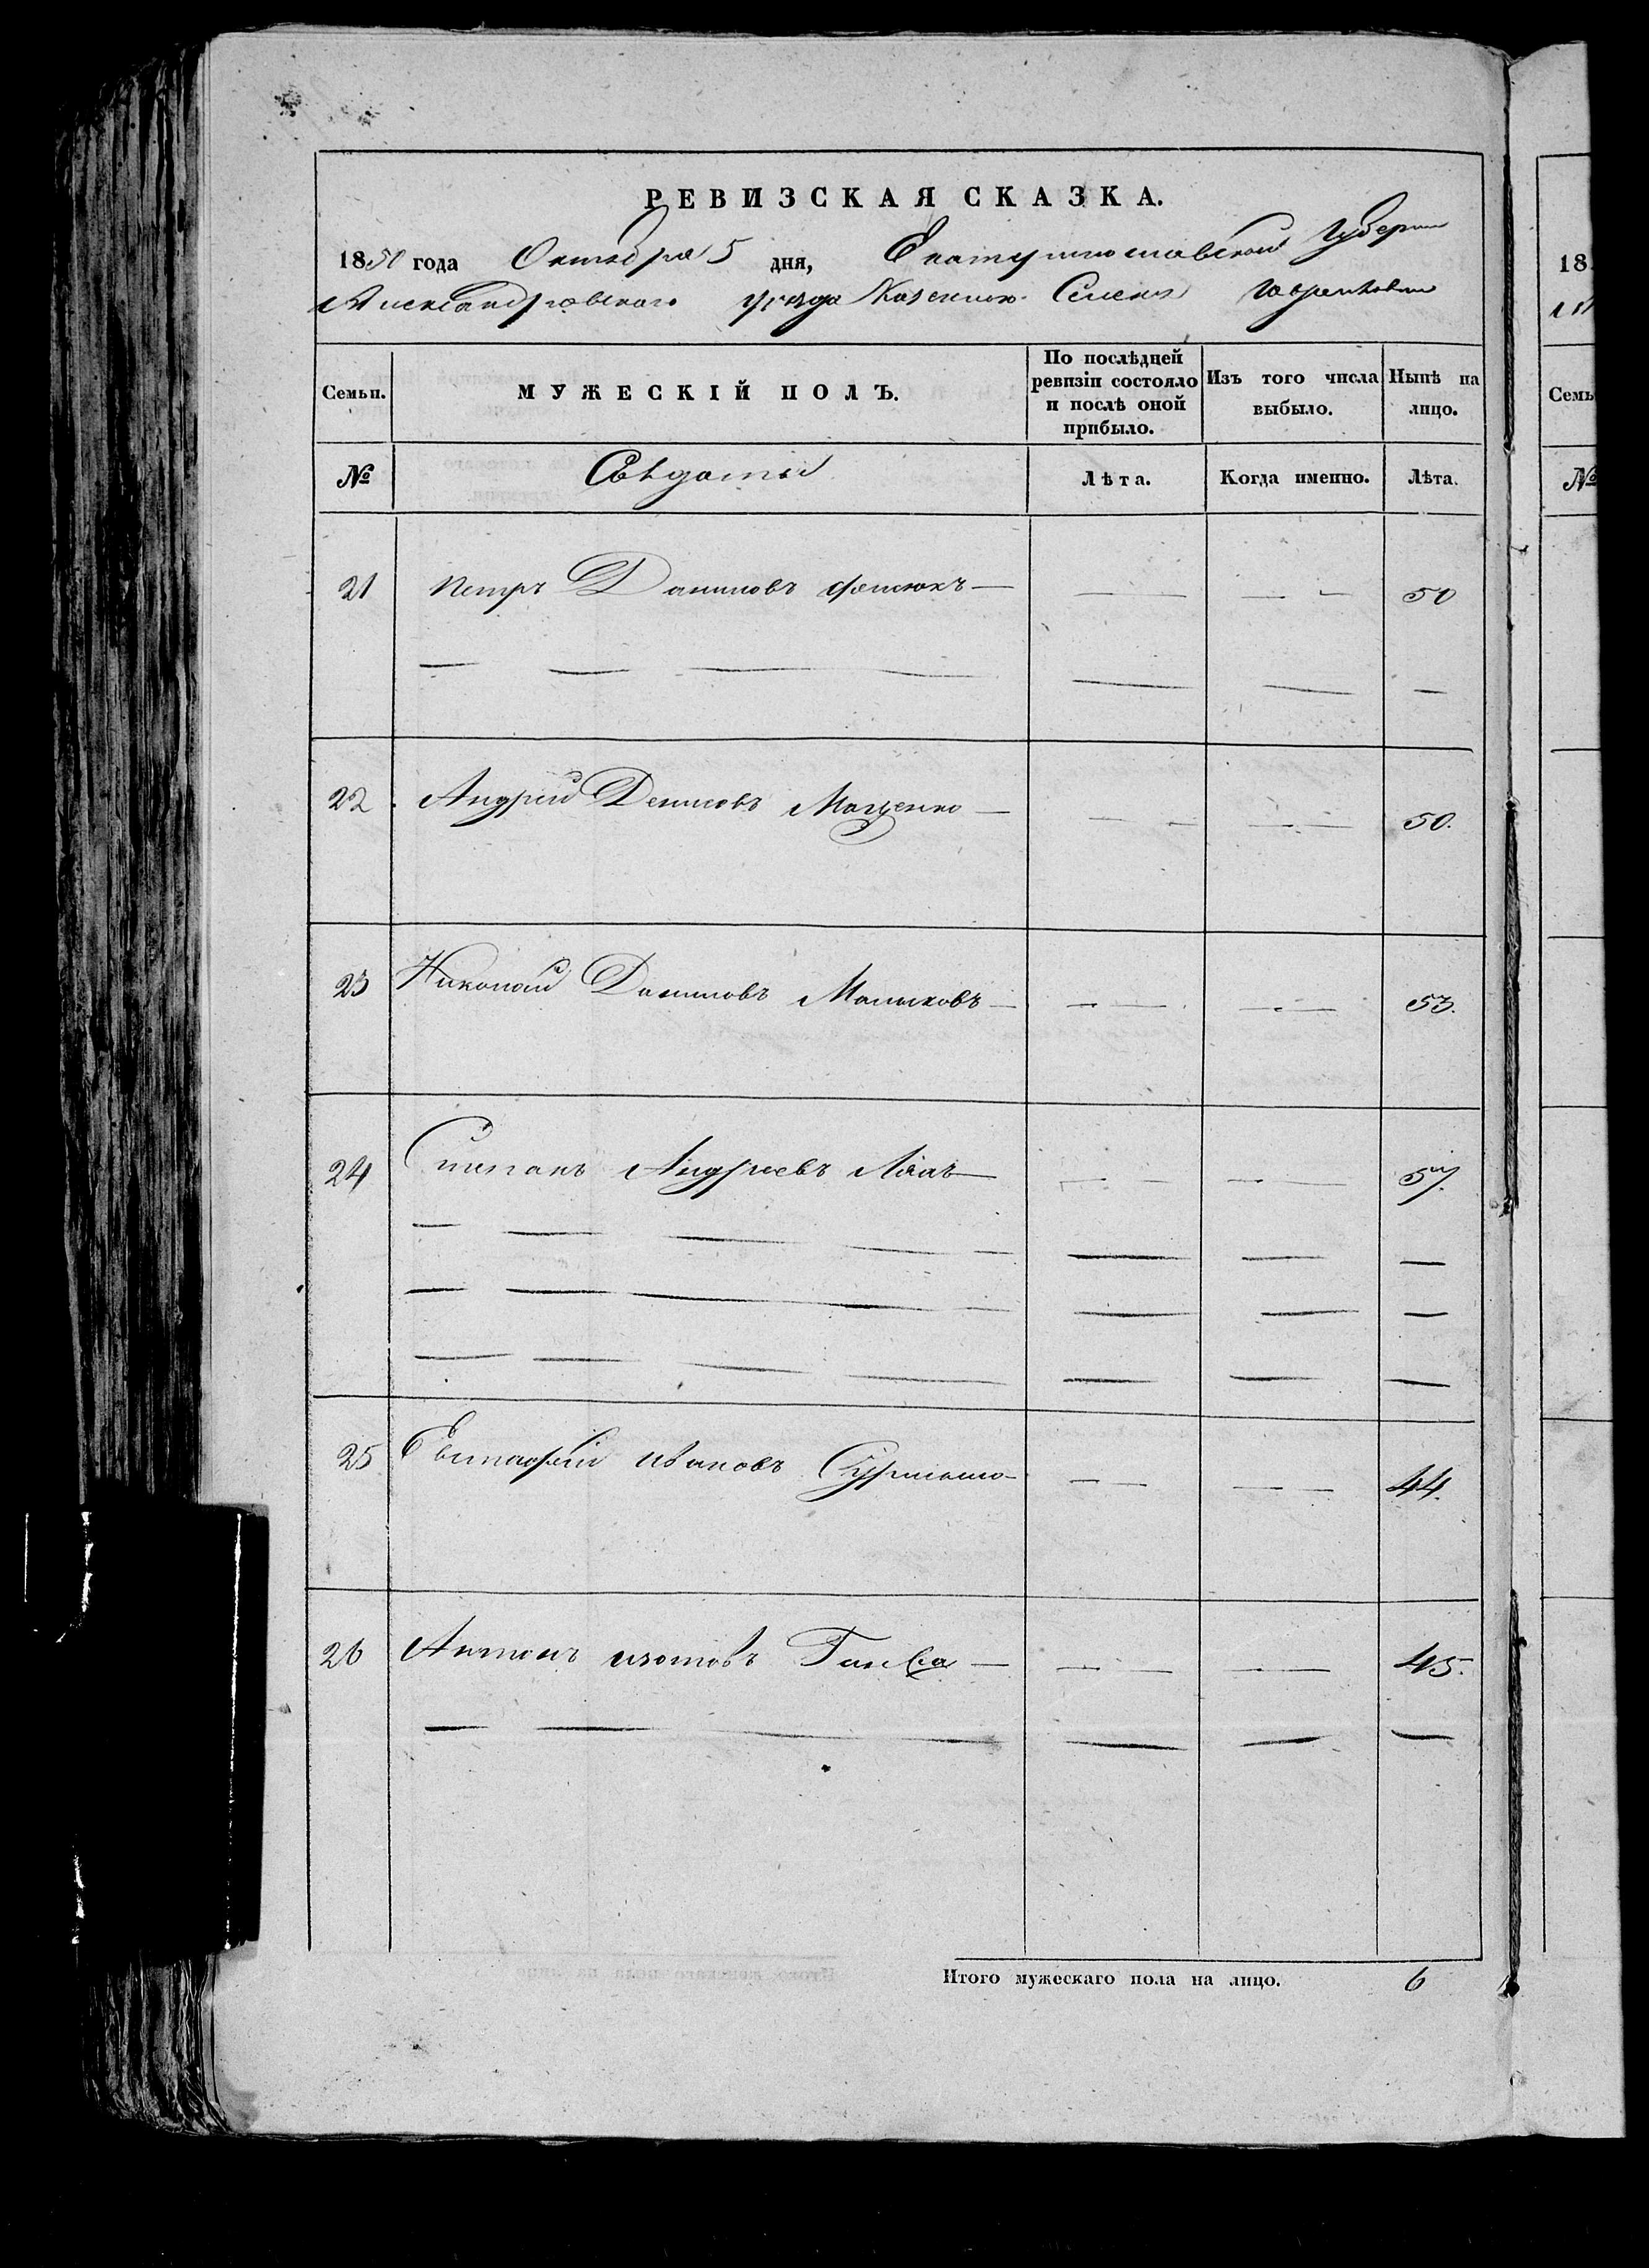 РЕВИЗСКАЯ СКАЗКА.
1850 года Октября 5 дня, Екатеринославской Губернии
Александровскаго уезда Казеннаго Селения Гавриловки
Семьи. МУЖЕСКІЙ ПОЛЪ. По послѣдней ревизіи состояло и послѣ оной прибыло. Изъ того числа выбыло. Нынѣ на лицо.
№ Лѣта. Когда именно. Лѣта.
21 Петръ Даниловъ — — — 50
— — — — — — —
22. Андрей Денисовъ Маценко — — — 50.
23 Николай Даниловъ Малиховъ — — — 53.
24 Степанъ Андреевъ — — — 57.
— — — — — — — —
— — — — — — — —
— — — — — — —
25 Евстафій Ивановъ — — 44.
26 Антонъ Изотовъ — — — 45.
— — — — — — —
Итого мужескаго пола на лицо. 6
18
Семь
№